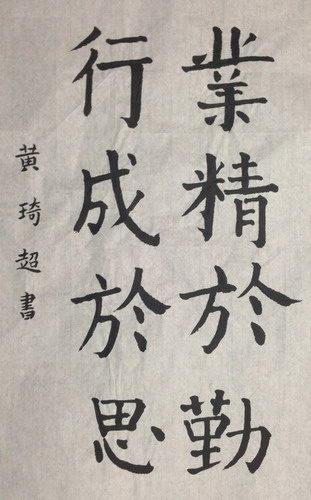 業精於勤
行成於思
黄琦超書